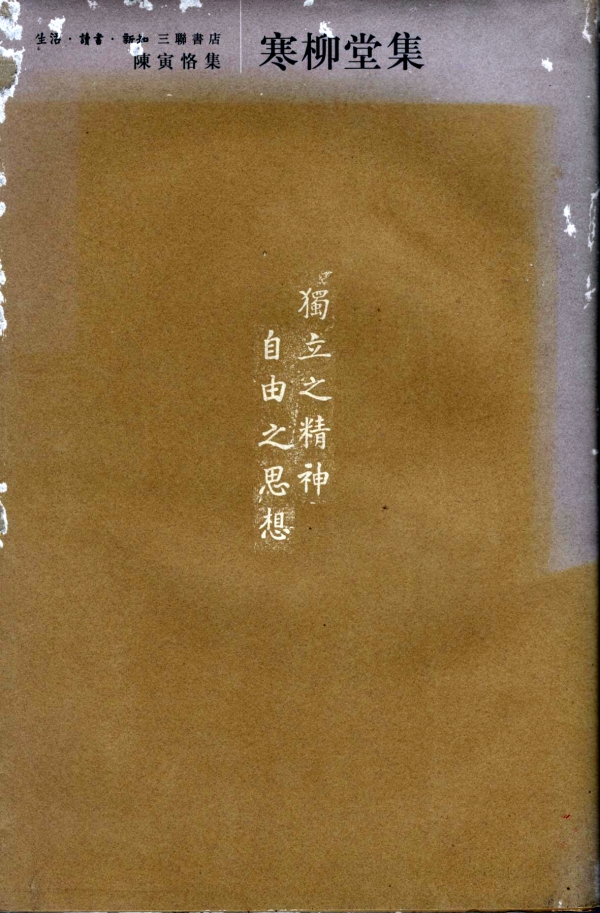 生活·讀書·新知 三聯書店
陳寅恪集
寒柳堂集
獨立之精神
自由之思想